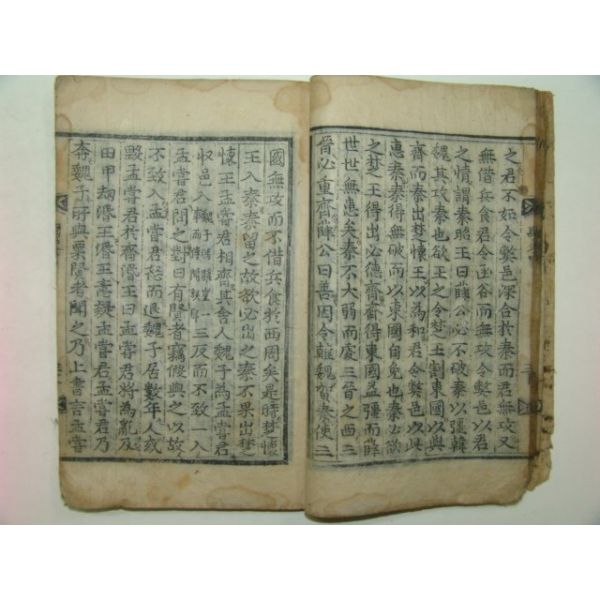 之君不如令獘邑深合於秦而君無攻又
無借兵食君令函谷而無攻令獘邑以君
之情謂秦昭王曰薛公必不破秦以張韓
魏其攻秦也欲王之令楚王割東國以與
齊而秦出楚懷王以為和君令獘邑以此
惠秦秦得無破而以東國自免也秦必欲
之楚王得出必德齊齊得東國益彊而薛
世世無患矣秦不大弱而處三晉之西三
晉必重齊薛公曰善因令韓魏賀秦使三
國無攻而不借兵食於西周矣是時楚懷
王入秦秦留之故欲必出之秦不果出楚
懷王孟嘗君相齊其舍人魏子為孟嘗君
収邑入三反而不致一入
孟嘗君問之對曰有賢者竊假與之以故
不致入孟嘗君怒而退魏子居數年人或
毀孟嘗君於齊湣王曰孟嘗君將為亂及
田甲劫湣王湣王意疑孟嘗君孟嘗君乃
奔魏子所與粟賢者聞之乃上書言孟嘗